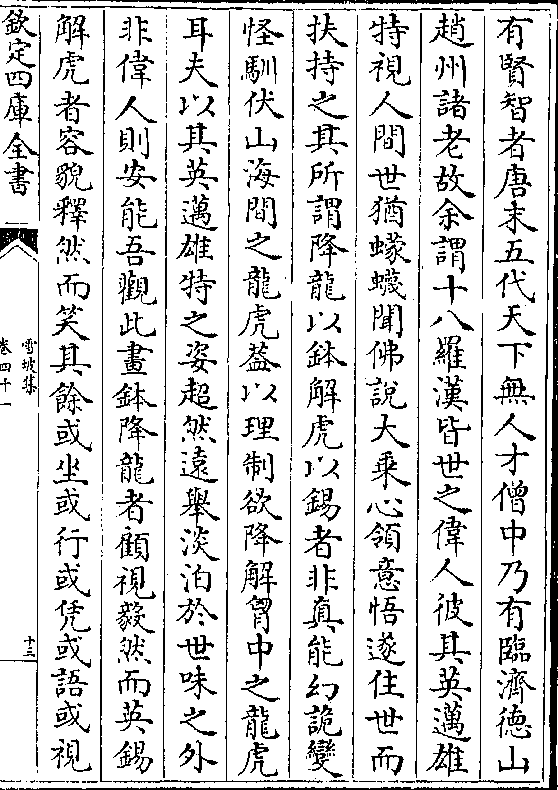 有賢智者唐末五代天下無人才僧中乃有臨濟德山
趙州諸老故余謂十八羅漢皆世之偉人彼其英邁雄
特視人間世猶蠓蠛聞佛說大乘心領意悟遂住世而
扶持之其所謂降龍以鉢解虎以錫者非真能幻詭變
怪馴伏山海間之龍虎葢以理制欲降解胷中之龍虎
耳夫以其英邁雄特之姿超然遠舉淡泊於世味之外
非偉人則安能吾觀此畫鉢降龍者顧視毅然而英錫
解虎者容貌釋然而笑其餘或坐或行或凭或語或視
欽定四庫全書
雪坡集
卷四十一
十三